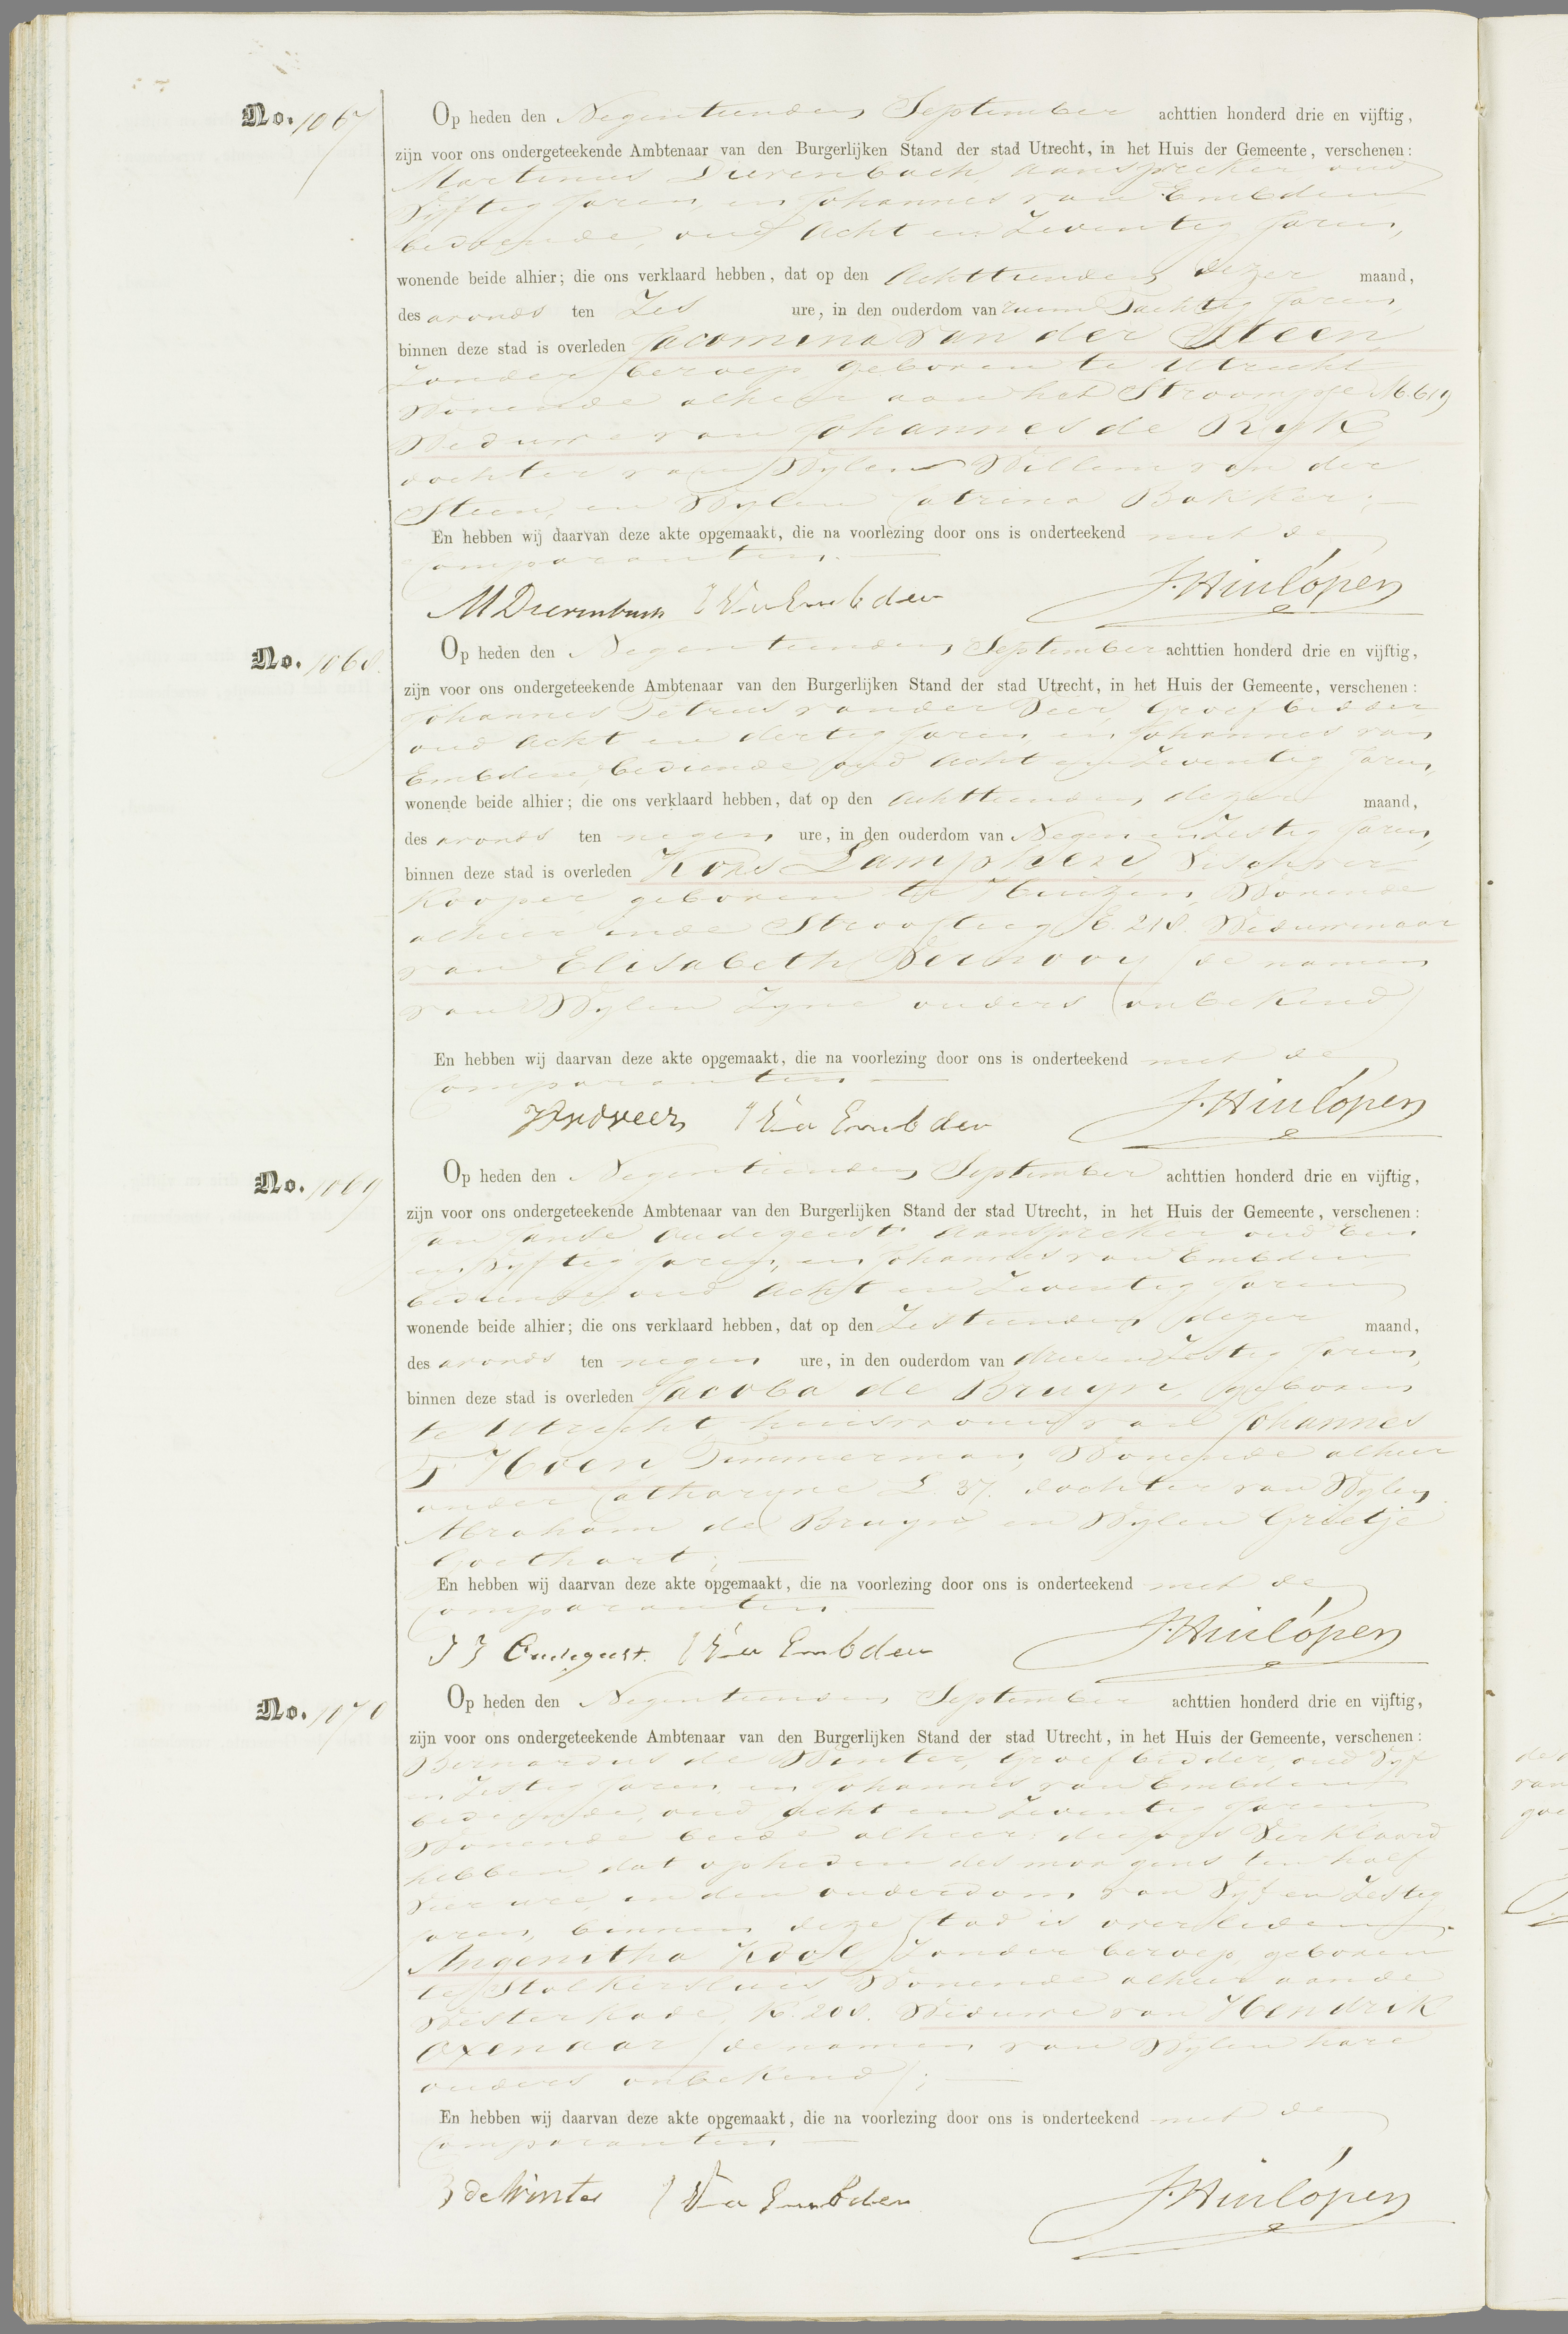 No. 1067
Op heden den Negentienden September achttien honderd drie en vijftig,
zijn voor ons ondergeteekende Ambtenaar van den Burgerlijken Stand der stad Utrecht, in het Huis der Gemeente, verschenen:
Martinus Dierenbach, aanspreker oud
Vyftig Jaren, en Johannes van Embden
bediende, oud Acht en Zeventig Jaren,
wonende beide alhier; die ons verklaard hebben, dat op den Achttienden dezer maand,
des avonds ten Zes ure, in den ouderdom van ruim Tachtig Jaren,
binnen deze stad is overleden Jacomina van der Steen
Zonder beroep, geboren te Utrecht
Wonende alhier aan het
Weduwe van Johannes de Ryk,
dochter van Wylen Willem van der
Steen, en Wylen Catrina Bakker;
En hebben wij daarvan deze akte opgemaakt, die na voorlezing door ons is onderteekend met de
Comparanten.
M Dierenbach J Van Embden J. Hinlópen
No. 1068.
Op heden den Negentienden September achttien honderd drie en vijftig,
zijn voor ons ondergeteekende Ambtenaar van den Burgerlijken Stand der stad Utrecht, in het Huis der Gemeente, verschenen:
Johannes Petrus van der Veer, Groefbidder
oud Acht en dertig Jaren, en Johannes van
Embden, bediende oud Acht en Zeventig Jaren,
wonende beide alhier; die ons verklaard hebben, dat op den Achttienden dezer maand,
des avonds ten negen ure, in den ouderdom van Negen en Zestig Jaren,
binnen deze stad is overleden Kors Lamphen, Visch ver=
Kooper, geboren te Huizen, Wonende
alhier inde Strooysteeg E. 218. Weduwenaar
van Elisabeth Vernooy (de namen
van Wylen Zyne ouders onbekend)
En hebben wij daarvan deze akte opgemaakt, die na voorlezing door ons is onderteekend met de
Comparanten
J. Hinlópen
J Van Embden
No. 1069
Op heden den Negentienden September achttien honderd drie en vijftig,
zijn voor ons ondergeteekende Ambtenaar van den Burgerlijken Stand der stad Utrecht, in het Huis der Gemeente, verschenen:
Jan Janse Oudegeest Aanspreker oud Een
en Vyftig Jaren, en Johannes van Embden
bediende, oud Acht en Zeventig Jaren
wonende beide alhier; die ons verklaard hebben, dat op den Zestienden dezer maand,
des avonds ten negen ure, in den ouderdom van drie en Zestig Jaren,
binnen deze stad is overleden Jacoba de Bruyn, geboren
te Utrecht huisvrouw van Johannes
T Hoen Timmerman, Wonende alhier
onder Catharyne L. 37. dochter van Wylen
Abraham de Bruyn en Wylen Grietje
Goethart;
En hebben wij daarvan deze akte opgemaakt, die na voorlezing door ons is onderteekend met de
Comparanten.
J J Oudegeest. J Van Embden J. Hinlópen
No. 1070
Op heden den Negentienden September achttien honderd drie en vijftig,
zijn voor ons ondergeteekende Ambtenaar van den Burgerlijken Stand der stad Utrecht, in het Huis der Gemeente, verschenen:
Bernardus de Winter, Groefbidder, oud Vyf
en Zestig Jaren en Johannes van Embden
bediende, oud Acht en Zeventig Jaren
Wonende beide alhier; die ons Verklaard
hebben dat op heden des morgens ten half
Vier ure, in den ouderdom van Vyf en Zestig
Jaren, binnen deze stad is overleden
Angenitha Kool, Zonder beroep, geboren
te Stolkersluis, Wonende alhier aan de
Westerkade K. 208. Weduwe van Hendrik
Oxenaar (de namen van Wylen hare
ouders onbekend);
En hebben wij daarvan deze akte opgemaakt, die na voorlezing door ons is onderteekend met de
Comparanten
B de Winter J Van Embden J. Hinlópen